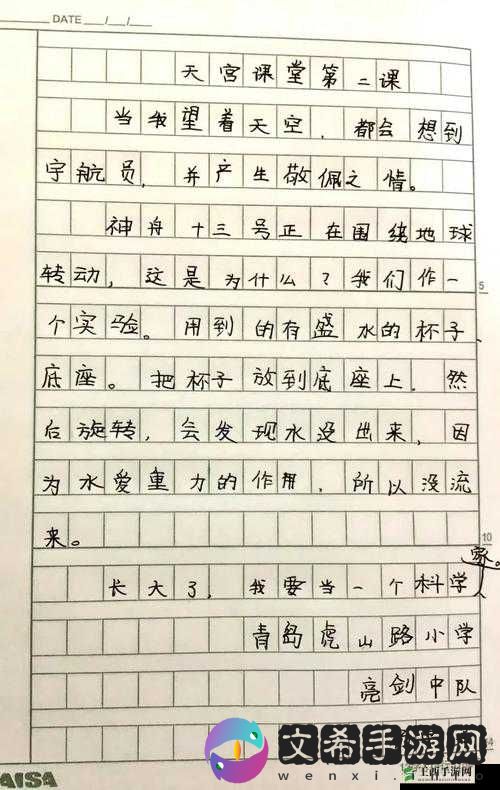 DATE / /
天宫课堂第二课
当我望着天空，都会想到
宇航员，并产生敬佩之情。
神舟十三号正在围绕地球
转动，这是为什么？我们作一
个实验。用到的有盛水的杯子、
底座。把杯子放到底座上，然
后旋转，会发现水没出来，因
5
为水爱重力的作用，所以没流
来。
10
长大了，我要当一个科学家。
青岛虎山路小学
亮剑中队
文希手游网
wenxi.
AISA